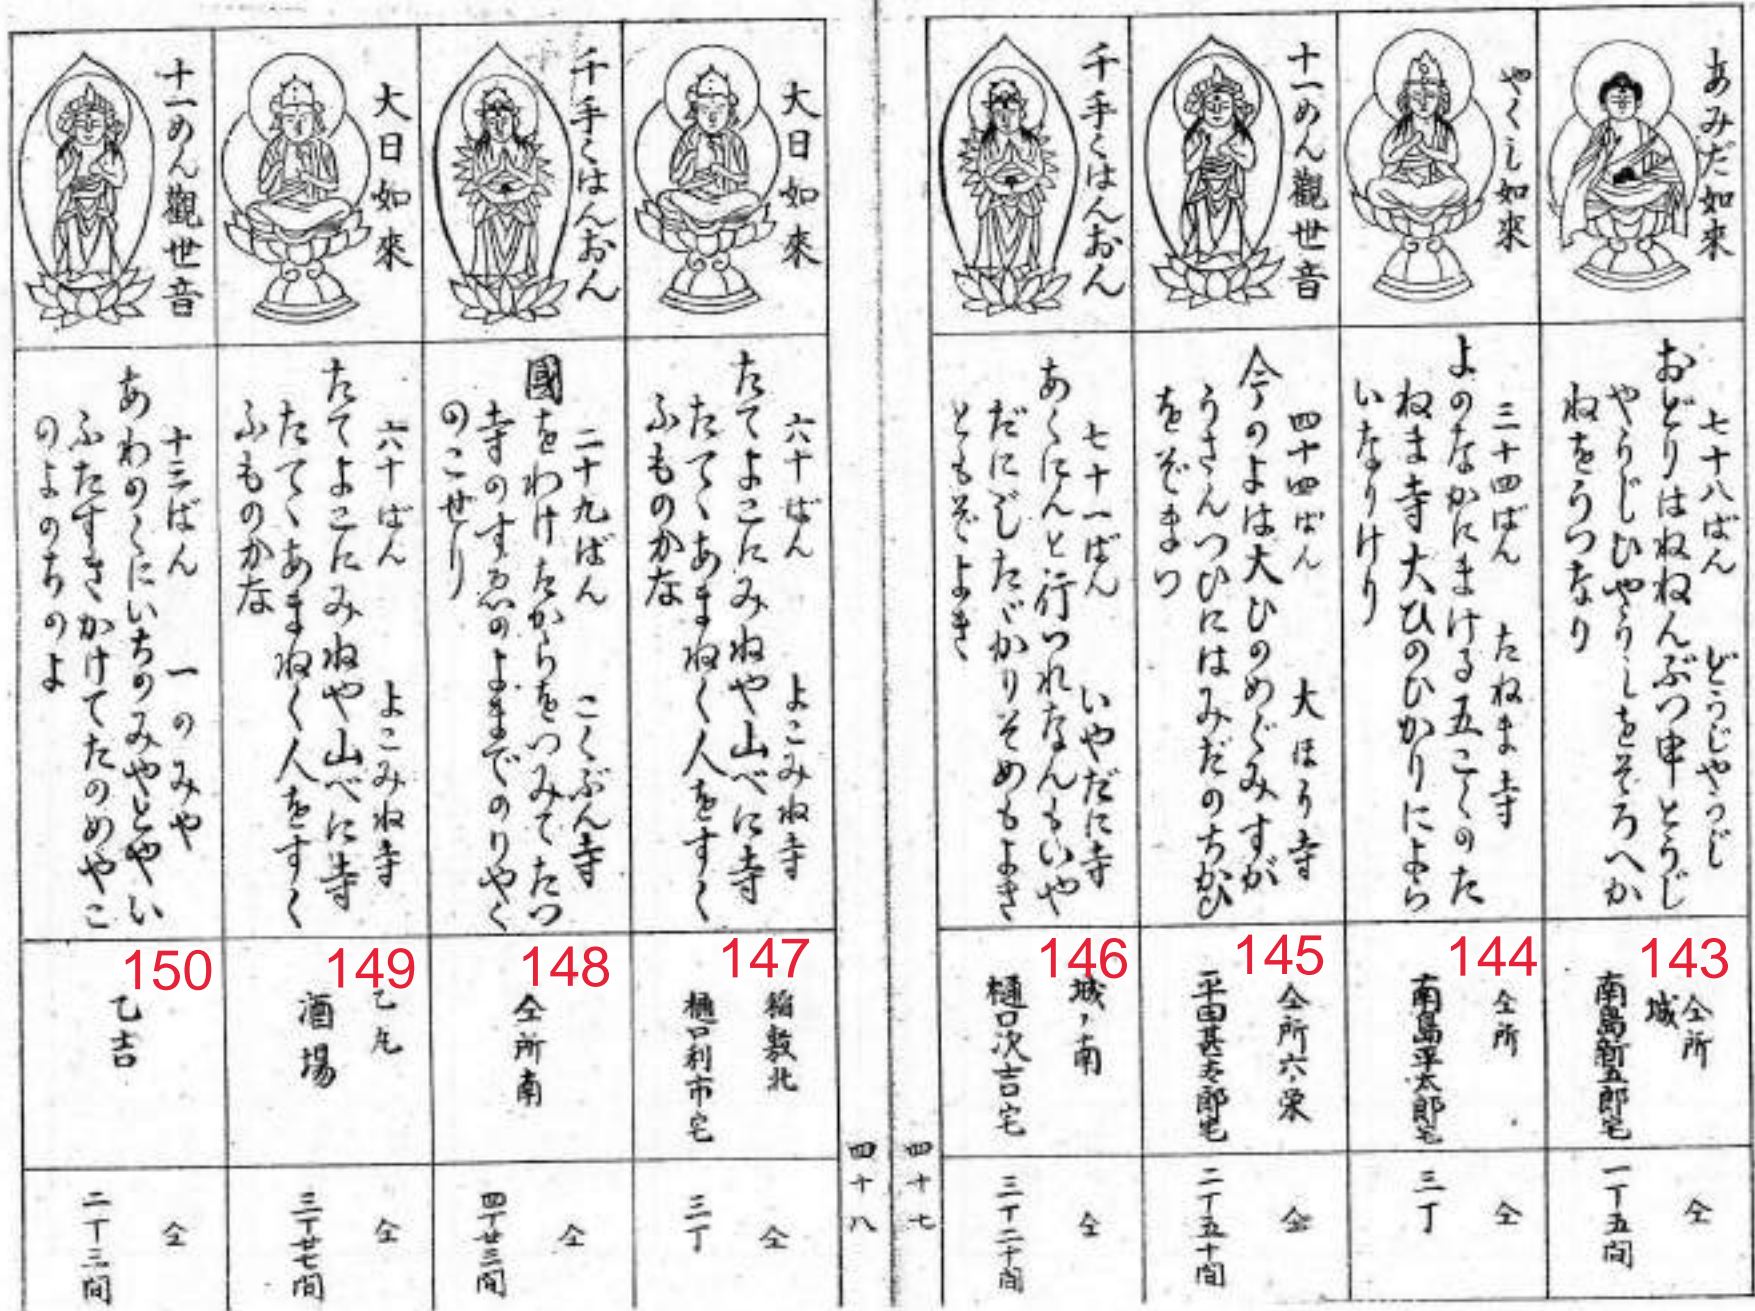 あみだ如來
七十八ばん　どうじやうじ
おどりはねねんぶつ申とうじ
やうじひやうしをそろへか
ねをうつなり
143
仝所
城
南島新五郎宅
仝
一丁五間
やくし如來
三十四ばん　たねま寺
よのなかにまける五こくのた
ねま寺大ひのひかりによら
いなりけり
144
仝所
南島平太郎宅
仝
三丁
十一めん觀世音
四十四ばん　大ほう寺
今のよは大ひのめぐみすが
うさんつひにはみだのちかひ
をぞまつ
145
仝所六、栄
平田甚太郎宅
仝
二丁五十間
千手くはんおん
七十一ばん　いやだに寺
あくにんと行つれなんもいや
だにじたゞかりそめもよき
ともぞよき
146
城ノ南
樋口次吉宅
仝
三丁二十間
四十七
四十八
大日如來
六十ばん　よこみね寺
たてよこにみねや山べに寺
たてゝあまねく人をすく
ふものかな
147
稲敷北
樋口利市宅
仝
三丁
千手くはんおん
二十九ばん　こくぶん寺
國をわけたからをつみてたつ
寺のすゑのよまでのりやく
のこせり
148
仝所南
仝
四丁廿三間
大日如來
六十ばん　よこみね寺
たてよこにみねや山べに寺
たてゝあまねく人をすく
ふものかな
149
酒場
仝
三丁廿七間
十一めん觀世音
十三ばん　一のみや
あわのくにいちのみやとやい
ふたすきかけてたのめやこ
のよのちのよ
150
乙吉
仝
二丁三間